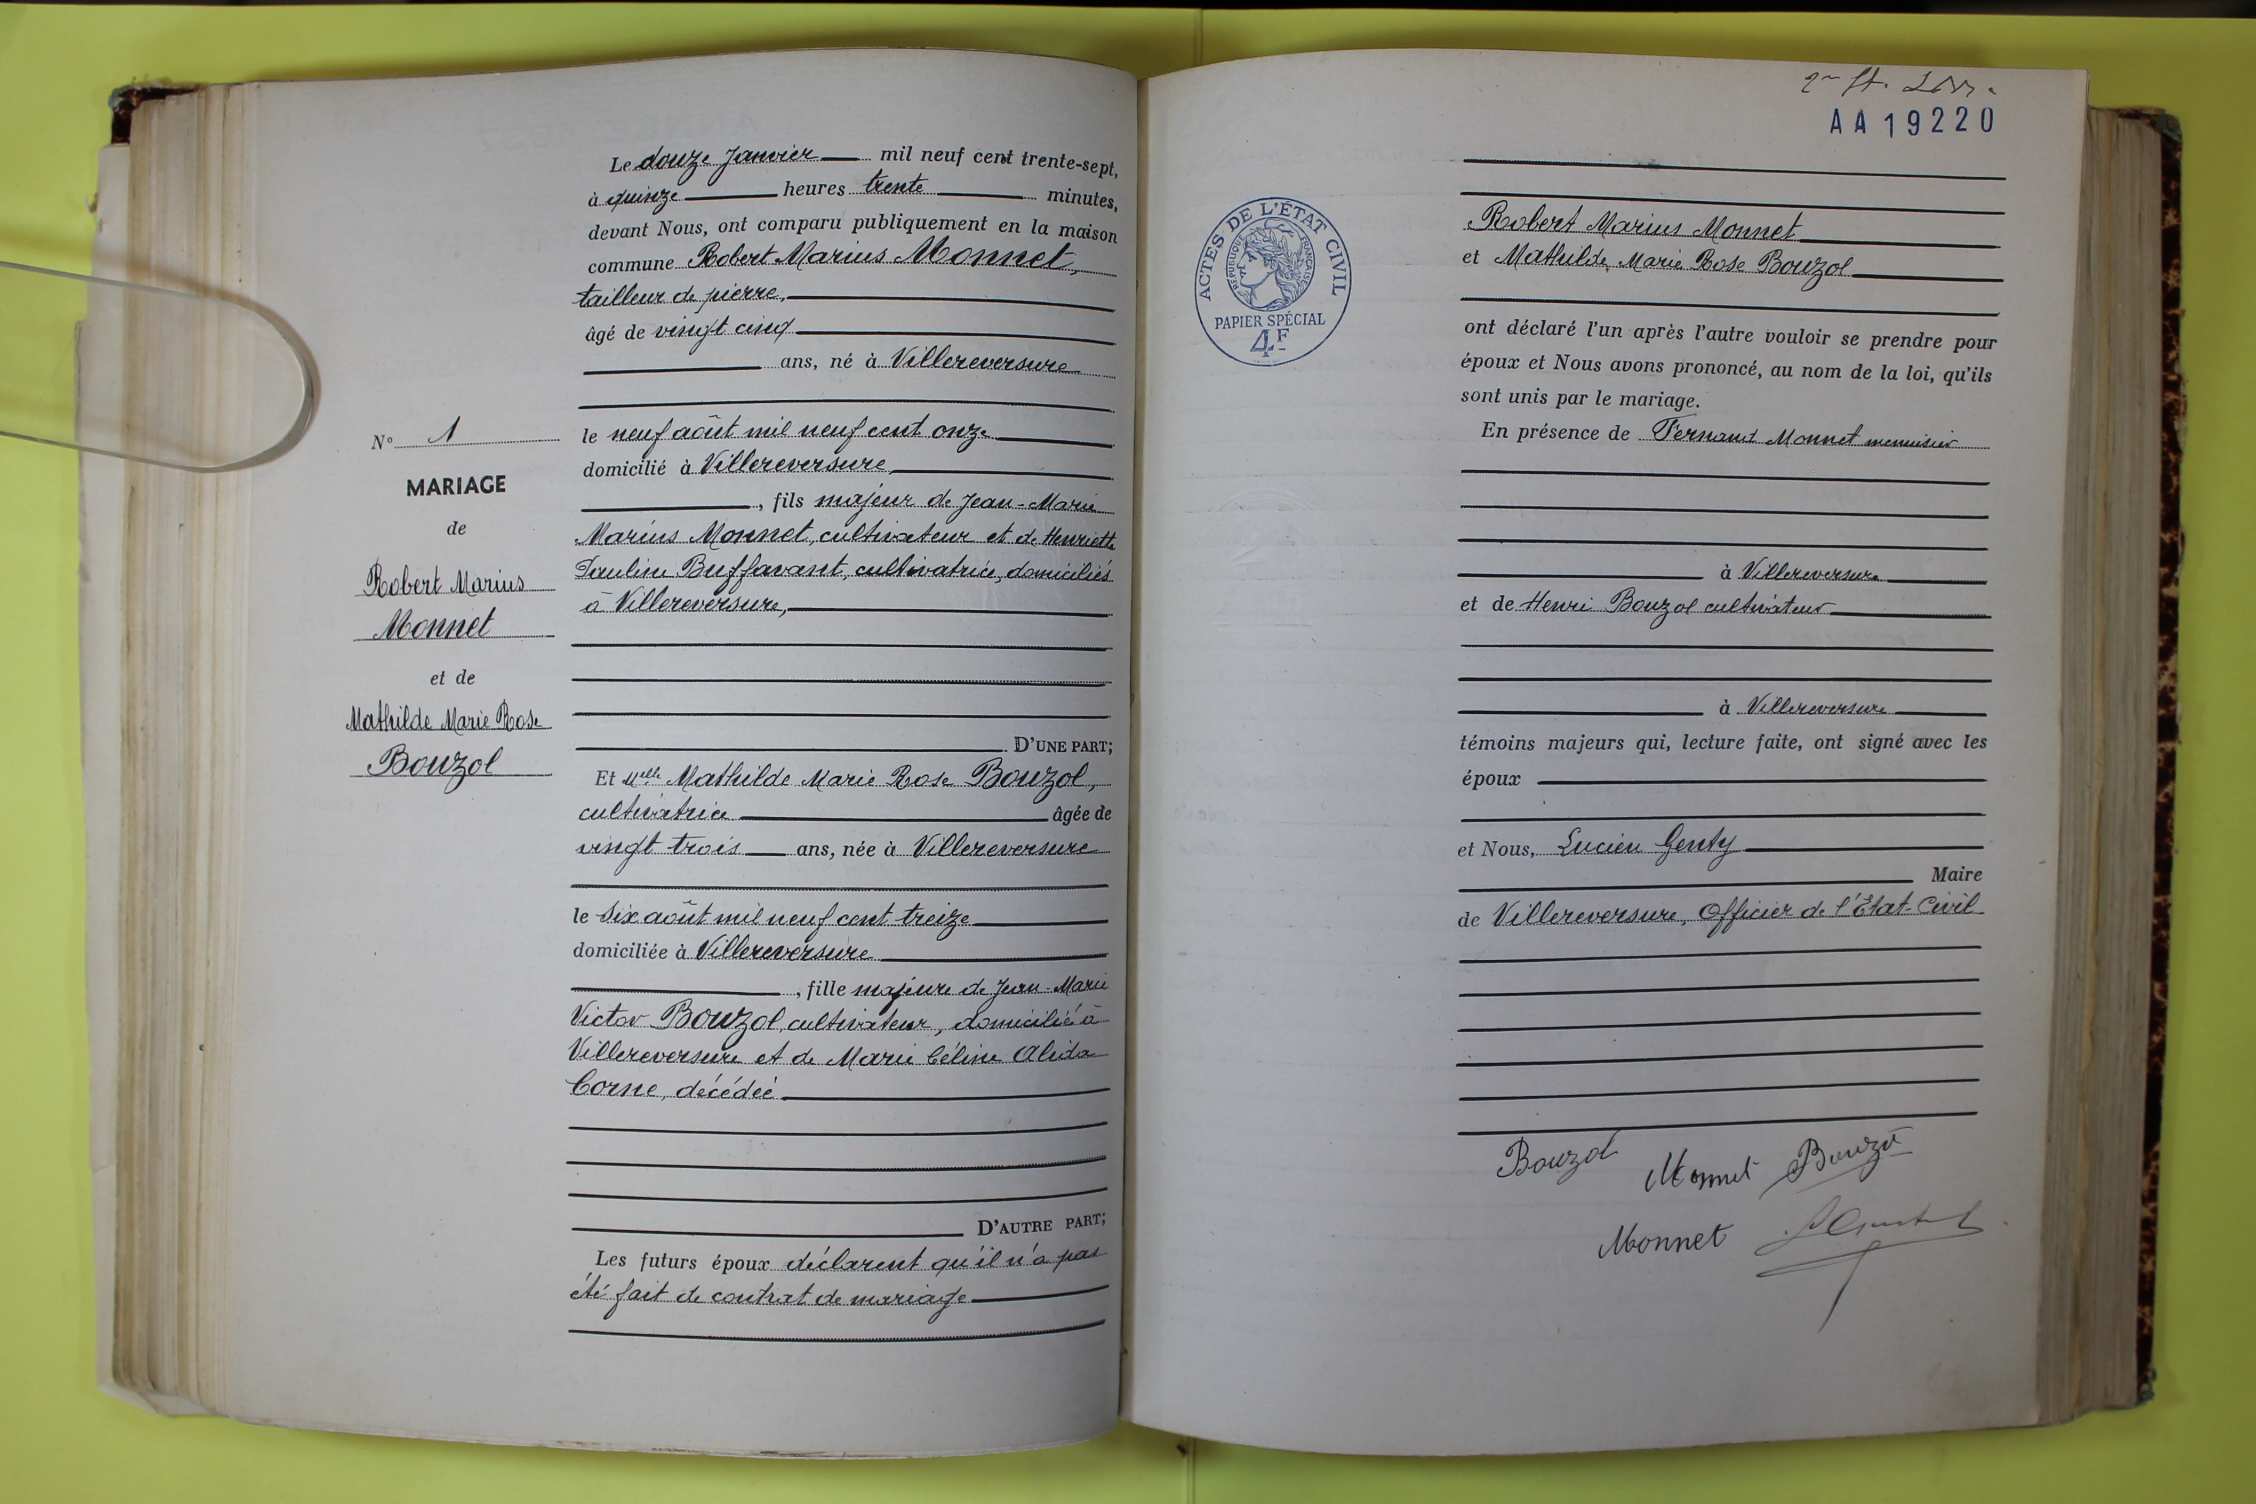 N° 1
MARIAGE
de
Robert Marius
Monnet
et de
Mathilde Marie Rose
Bouzol
Le douze Janvier mil neuf cent trente-sept,
à quinze heures trente minutes,
devant Nous, ont comparu publiquement en la maison
commune Robert Marius Monnet,
tailleur de pierre,
âgé de vingt cinq
ans, né à Villereversure
le neuf août mil neuf cent onze
domicilié à Villereversure
, fils majeur de Jean-Marie
Marius Monnet, cultivateur et de Henriette
Pauline Buffavant, cultivatrice, domiciliés
à Villereversure,
D'UNE PART;
Et Melle Mathilde Marie Rose Bouzol,
cultivatrice âgée de
vingt trois ans, née à Villereversure
le six août mil neuf cent treize
domiciliée à Villereversure
, fille majeure de Jean-Marie
Victor Bouzol, cultivateur, domicilié à
Villereversure et de Marie Céline Alida
Corne, décédée
D'AUTRE PART;
Les futurs époux déclarent qu'il n'a pas
été fait de contrat de mariage
AA 19220
ACTES DE L'ÉTAT CIVIL
RÉPUBLIQUE FRANÇAISE
PAPIER SPÉCIAL
4F
Robert Marius Monnet
et Mathilde Marie Rose Bouzol
ont déclaré l'un après l'autre vouloir se prendre pour
époux et Nous avons prononcé, au nom de la loi, qu'ils
sont unis par le mariage.
En présence de Fernand Monnet menuisier
à Villereversure
et de Henri Bouzol cultivateur
à Villereversure
témoins majeurs qui, lecture faite, ont signé avec les
époux
et Nous, Lucien Genty
Maire
de Villereversure, Officier de l'Etat-Civil
Bouzol Monnet Bouzol
Monnet